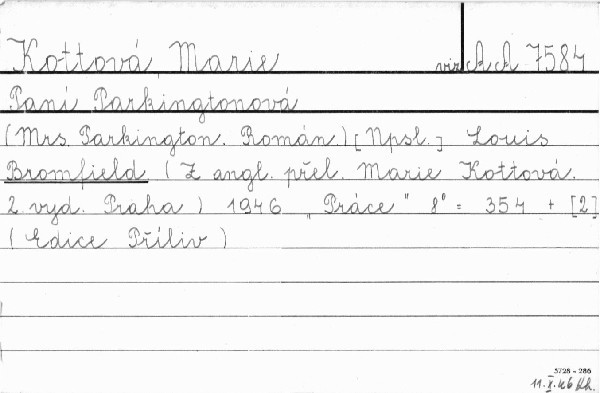 Kottová Marie viz AA 7584
Paní Parkingtonová
(Mrs. Parkington. Román.) [Npsl.] Louis
Bromfield (Z angl. přel. Marie Kottová.
2. vyd. Praha) 1946 „Práce" 8° = 354 + [2]
(Edice Příliv)
5728 - 286
11. X. 46 Kh.